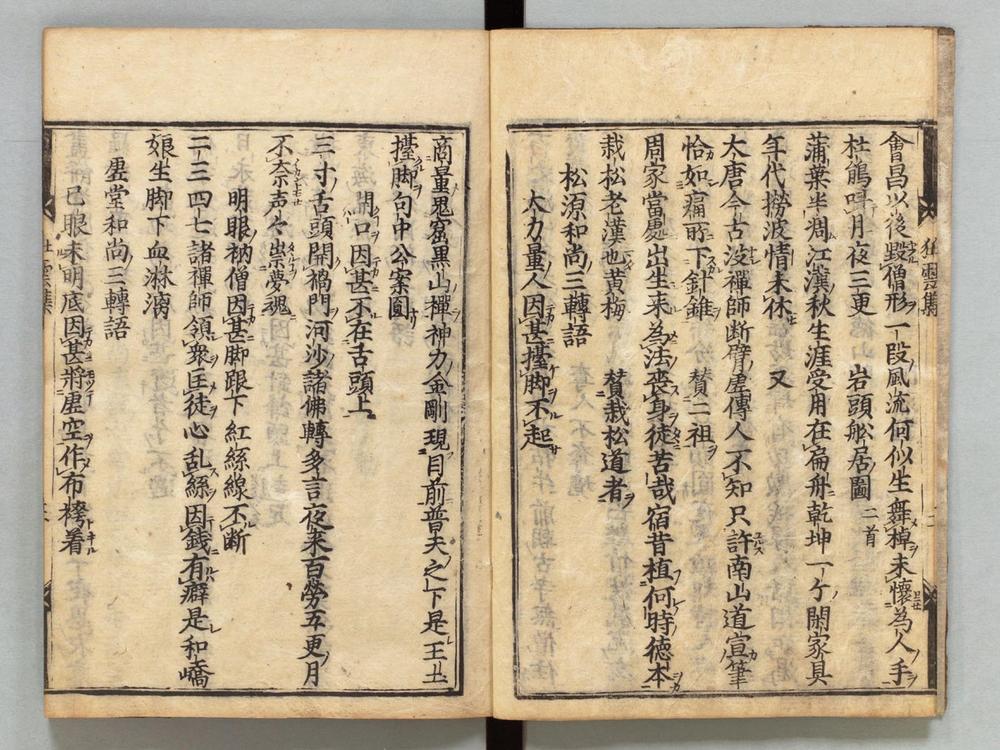 會昌以後毀僧形一段風流何似生舞棹未懷為人手
杜鵑叫月夜三更　岩頭舩居圖二首
蒲葉半凋江漢秋生涯受用在扁舟乾坤一ケ閑家具
年代撈波情未休　又
大唐今古没禪師断臂虚傳人不知只許南山道宣筆
恰如痛所下針錐　賛二祖
周家當處出生来為法喪身徒苦哉宿昔植何時德本
栽松老漢也黄梅　賛栽松道者
松源和尚三轉語
大力量人因甚擡脚不起
商量鬼窟黒山禪神力金剛現目前普天之下是王土
擡脚句中公案圓
開口因甚不在舌頭上
三寸舌頭開禍門河沙諸佛轉多言夜来百勞五更月
不奈声々祟夢魂
明眼衲僧因甚脚跟下紅絲線不断
二三四七諸禪師領衆匡徒心乱絲因錢有癖是和嶠
娘生脚下血淋漓
虚堂和尚三轉語
己眼未明底因甚將虚空作布袴着
狂雲集